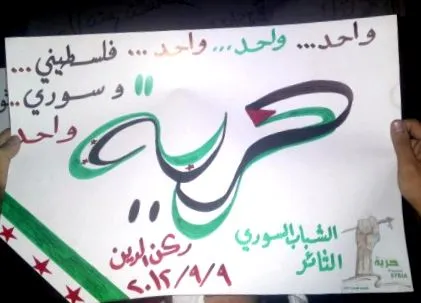 واحد... واحد... واحد... فلسطيني ...
و سوري ..
واحد
حرية
الشباب السوري
الثائر
ركن الدين
٢٠١٢/٩/٩
حرية
SYRIA